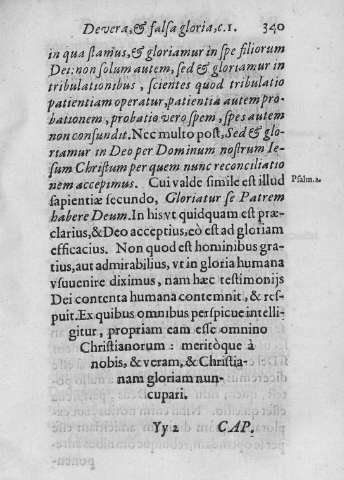 De vera, & falsa gloria, c. 1. 340
in qua stamus, & gloriamur in spe filiorum
Dei: non solum autem, sed & gloriamur in
tribulationibus, scientes quod tribulatio
patientiam operatur, patientia autem pro-
bationem, probatio vero spem, spes autem
non confundit. Nec multo post, Sed & glo-
riamur in Deo per Dominum nostrum Ie-
sum Christum per quem nunc reconciliatio
nem accepimus. Cui valde simile est illud
Psalm. 2.
sapientiæ secundo, Gloriatur se Patrem
habere Deum. In his vt quidquam est præ-
clarius, & Deo acceptius, eò est ad gloriam
efficacius. Non quod est hominibus gra-
tius, aut admirabilius, vt in gloria humana
vsuuenire diximus, nam hæc testimonijs
Dei contenta humana contemnit, & res-
puit. Ex quibus omnibus perspicue intelli-
gitur, propriam eam esse omnino
Christianorum: meritòque à
nobis, & veram, & Christia-
nam gloriam nun-
cupari.
Yy 2 CAP.